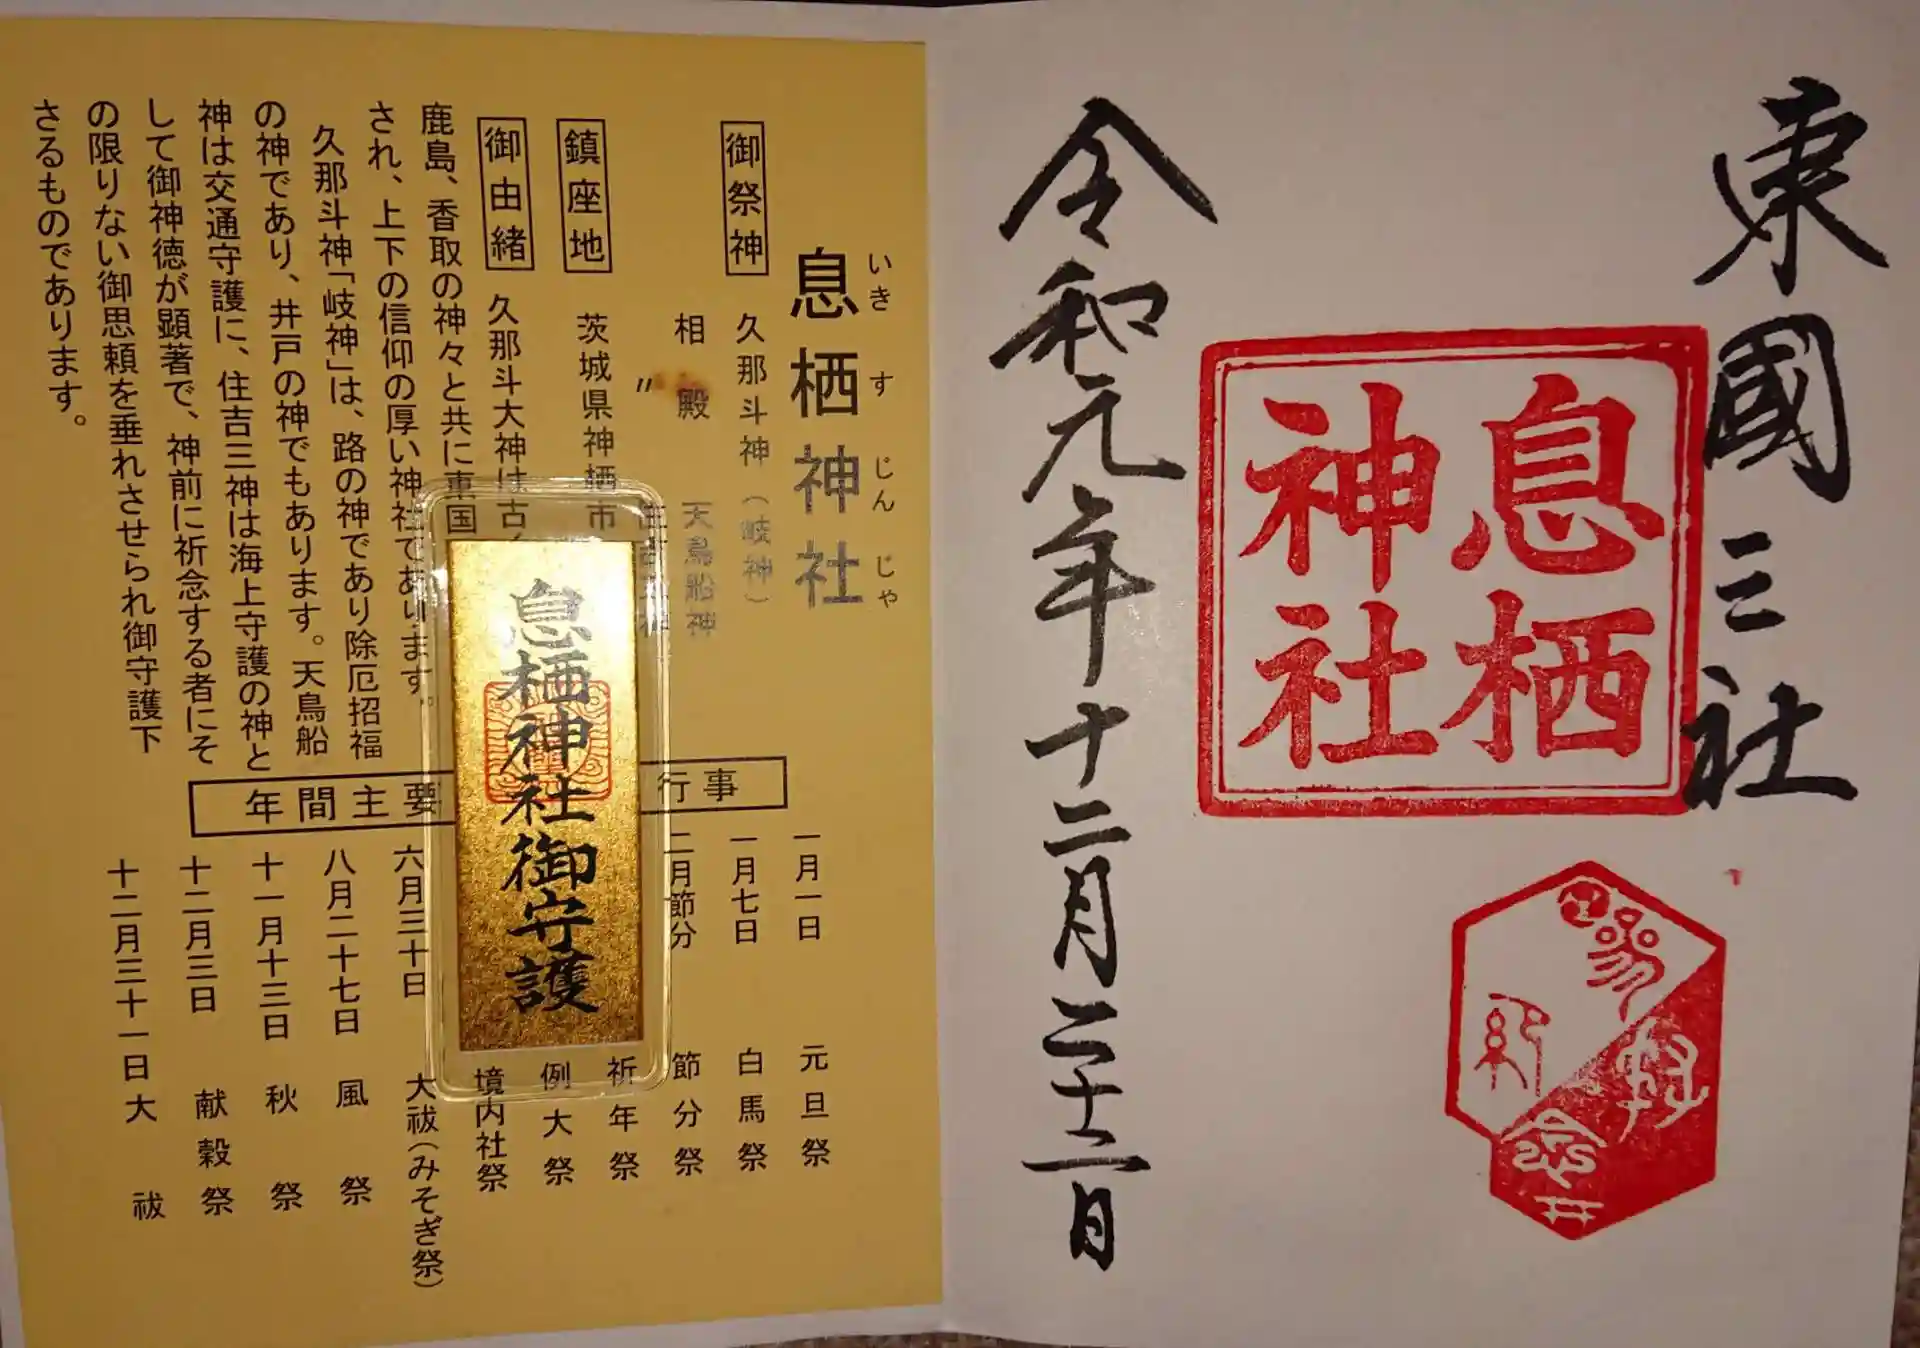 東國三社
息栖
神社
令和元年十二月二十二日
いきすじんじゃ
息栖神社
御祭神
久那斗神（岐神）
相殿 天鳥船神
〃
鎮座地
茨城県神栖市
御由緒
久那斗大神は古
鹿島、香取の神々と共に東国
され、上下の信仰の厚い神社であります。
久那斗神「岐神」は、路の神であり除厄招福
の神であり、井戸の神でもあります。天鳥船
神は交通守護に、住吉三神は海上守護の神と
して御神徳が顕著で、神前に祈念する者にそ
の限りない御恩頼を垂れさせられ御守護下
さるものであります。
息栖神社御守護
年間主要行事
一月一日 元旦祭
一月七日 白馬祭
二月節分 節分祭
祈年祭
例大祭
境内社祭
六月三十日 大祓（みそぎ祭）
八月二十七日 風祭
十一月十三日 秋祭
十二月三日 献穀祭
十二月三十一日 大祓